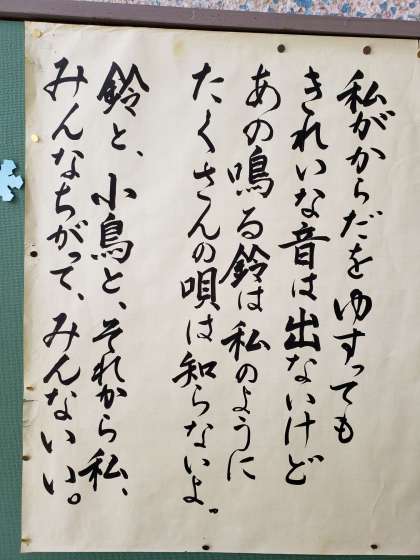 私がからだをゆすっても
きれいな音は出ないけど
あの鳴る鈴は私のように
たくさんの唄は知らないよ。
鈴と、小鳥と、それから私、
みんなちがって、みんないい。